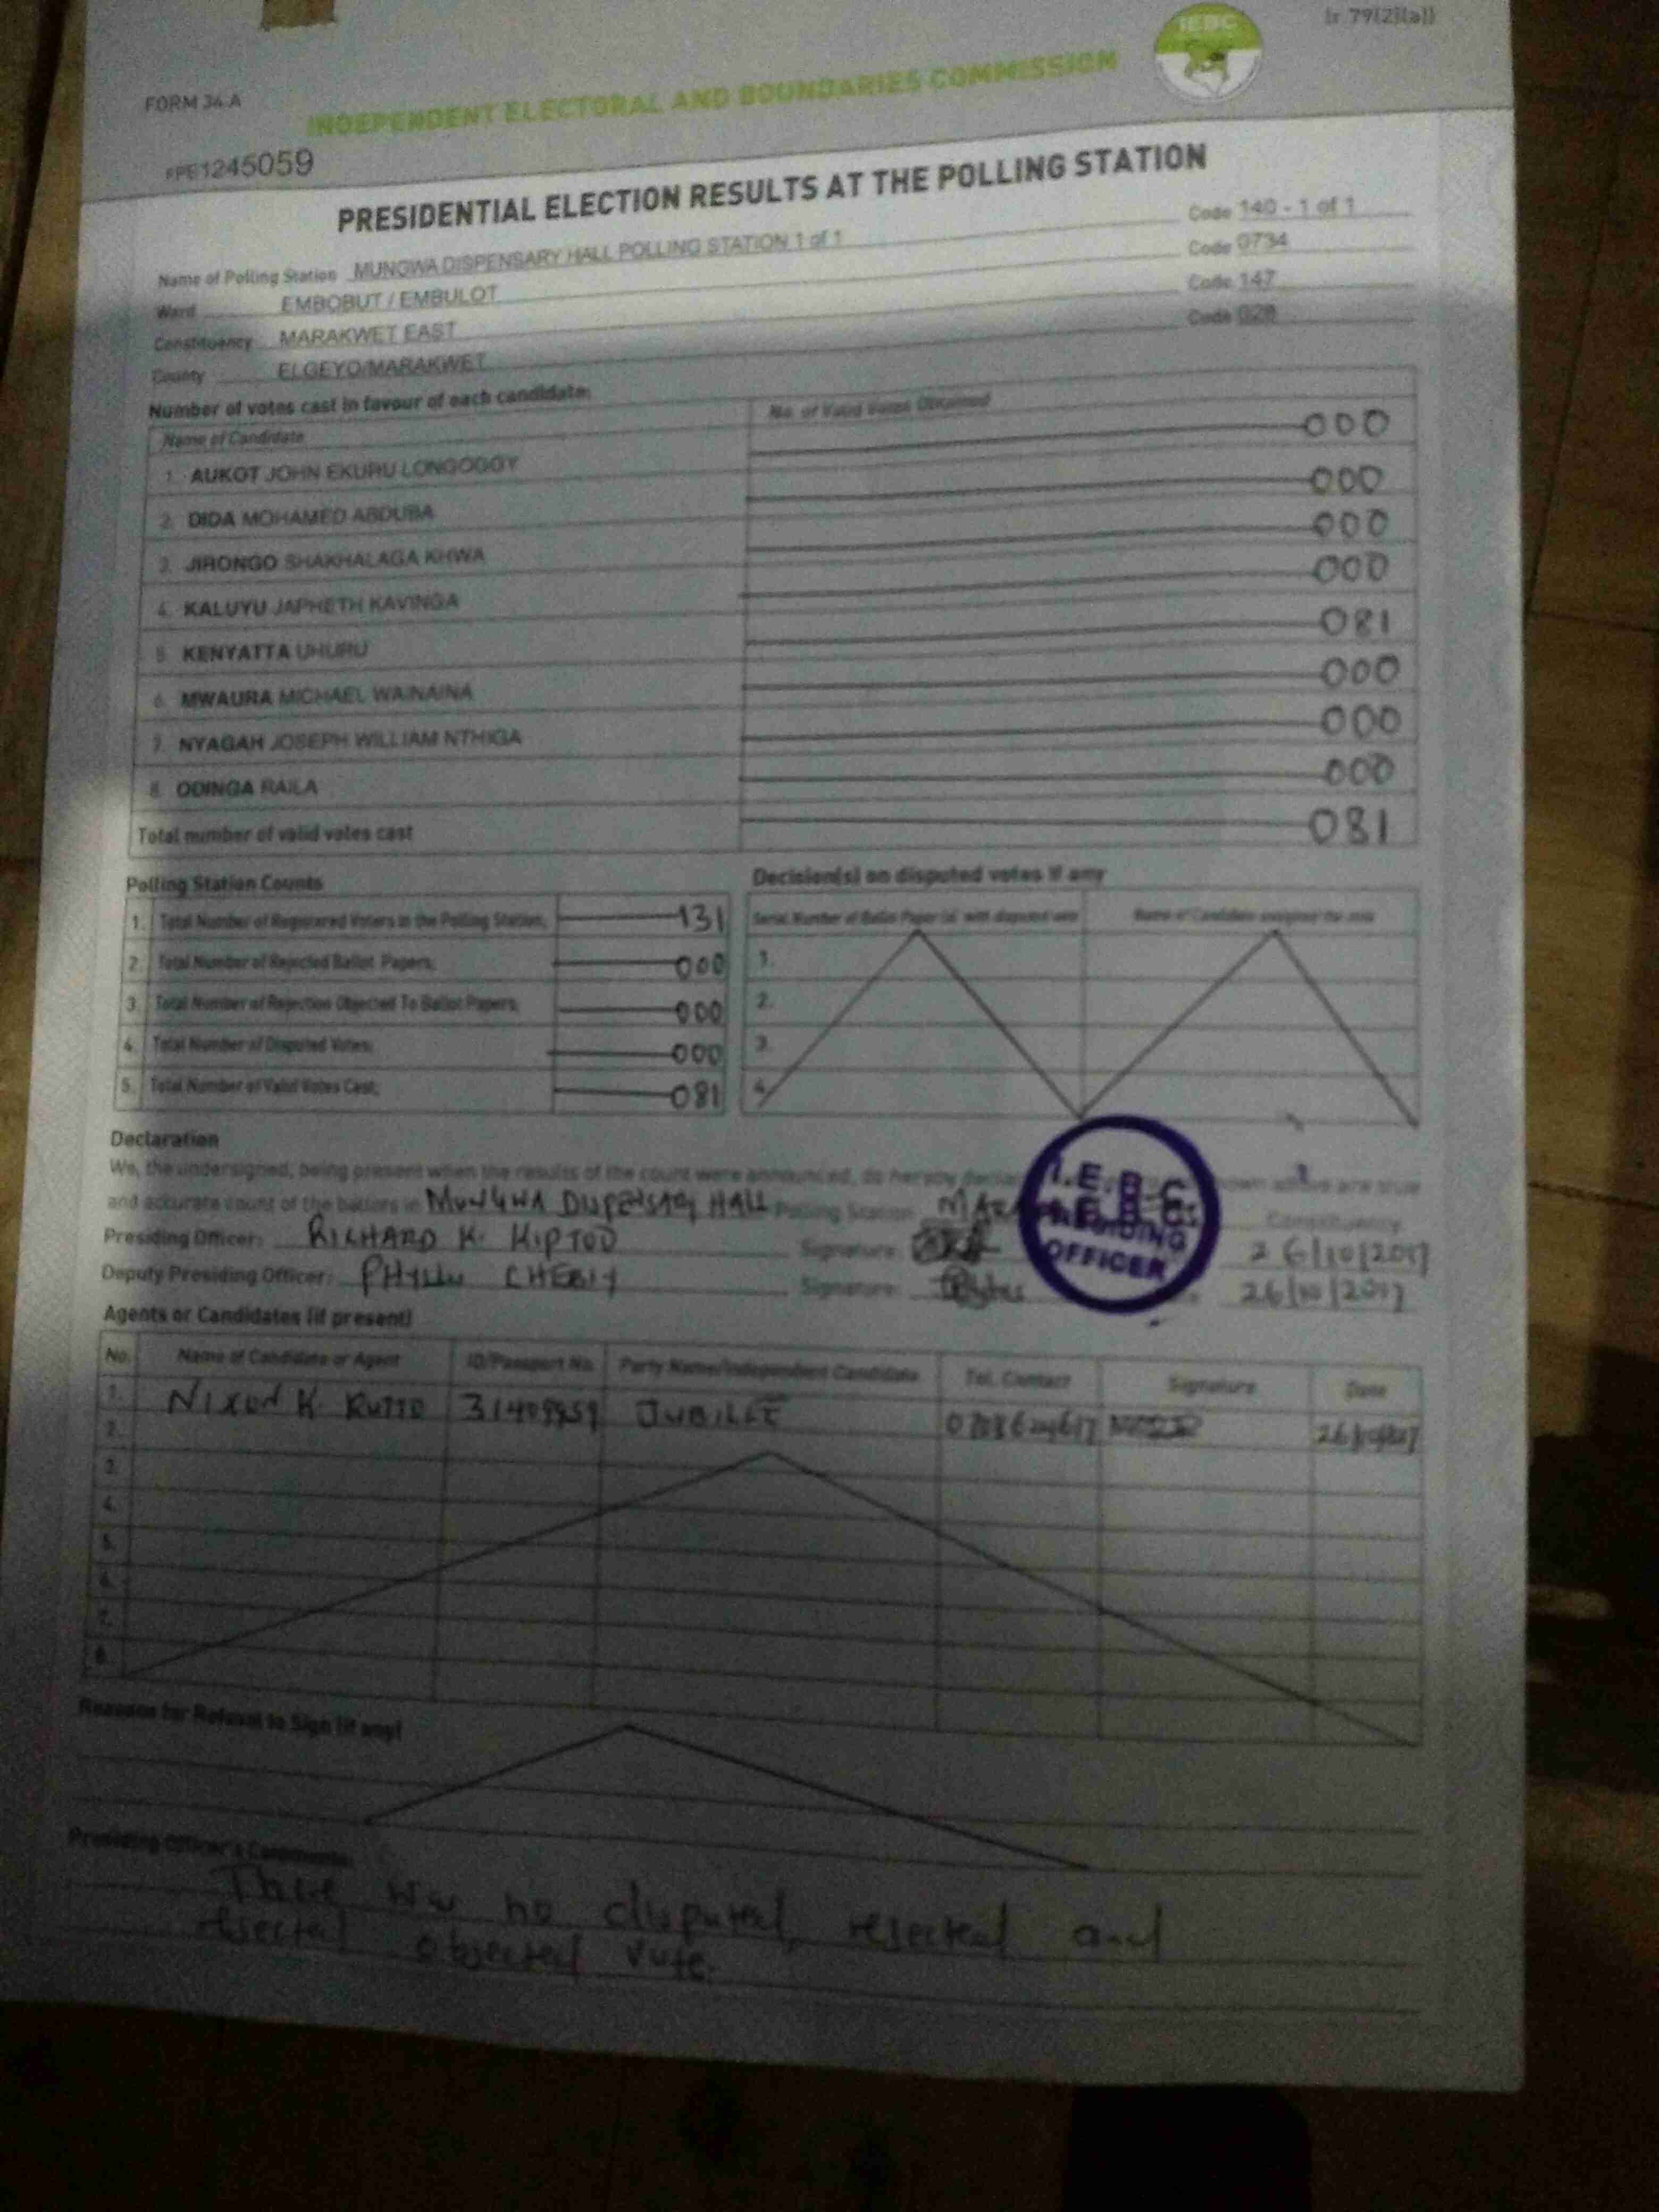 (r.79(2)(a))
IEBC
FORM 34 A
INDEPENDENT ELECTORAL AND BOUNDARIES COMMISSION
FPE1245059
PRESIDENTIAL ELECTION RESULTS AT THE POLLING STATION
Name of Polling Station MUNGWA DISPENSARY HALL POLLING STATION 1 of 1 Code 140 - 1 of 1
Ward EMBOBUT / EMBULOT Code 0734
Constituency MARAKWET EAST Code 147
County ELGEYO/MARAKWET Code 028
Number of votes cast in favour of each candidate:
Name of Candidate No. of Valid Votes Obtained
1. AUKOT JOHN EKURU LONGOGGY 000
2. DIDA MOHAMED ABDUBA 000
3. JIRONGO SHAKHALAGA KHWA 000
4. KALUYU JAPHETH KAVINGA 000
5. KENYATTA UHURU 081
6. MWAURA MICHAEL WAINAINA 000
7. NYAGAH JOSEPH WILLIAM NTHIGA 000
8. ODINGA RAILA 000
Total number of valid votes cast 081
Polling Station Counts
1. Total Number of Registered Voters in the Polling Station; 131
2. Total Number of Rejected Ballot Papers; 000
3. Total Number of Rejection Objected To Ballot Papers; 000
4. Total Number of Disputed Votes; 000
5. Total Number of Valid Votes Cast; 081
Decision(s) on disputed votes if any
Serial Number of Ballot Paper (s) with disputed vote Name of Candidate assigned the vote
1.
2.
3.
4.
Declaration
We, the undersigned, being present when the results of the count were announced, do hereby declare shown above are true
and accurate count of the ballots in MUNGWA DISPENSARY HALL Polling Station Constituency
Presiding Officer: RICHARD K. KIPTOO Signature: 26/10/2017
Deputy Presiding Officer: CHEBII Signature: 26/10/2017
I.E.B.C.
PRESIDING
OFFICER
Agents or Candidates (if present)
No. Name of Candidate or Agent ID/Passport No. Party Name/Independent Candidate Tel. Contact Signature Date
1. NIXON K. RUTTO JUBILEE
2.
3.
4.
5.
6.
7.
8.
Reasons for Refusal to Sign (if any)
Presiding Officer's Comments:
There was no disputed, rejected and
rejected objected vote.